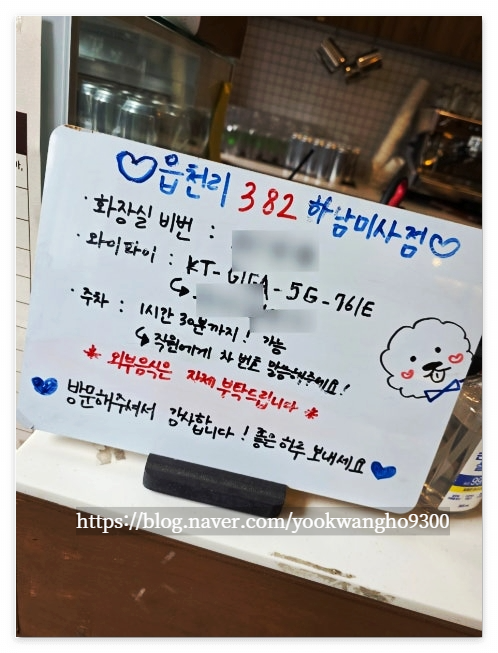 읍천리 382 하남미사점
· 화장실 비번 :
· 와이파이 : KT-GIGA-5G-761E
· 주차 : 1시간 30분까지! 가능
↳ 직원에게 차 번호 말씀해주세요!
* 외부음식은 자제 부탁드립니다 *
방문해주셔서 감사합니다! 좋은 하루 보내세요
https://blog.naver.com/yookwangho9300